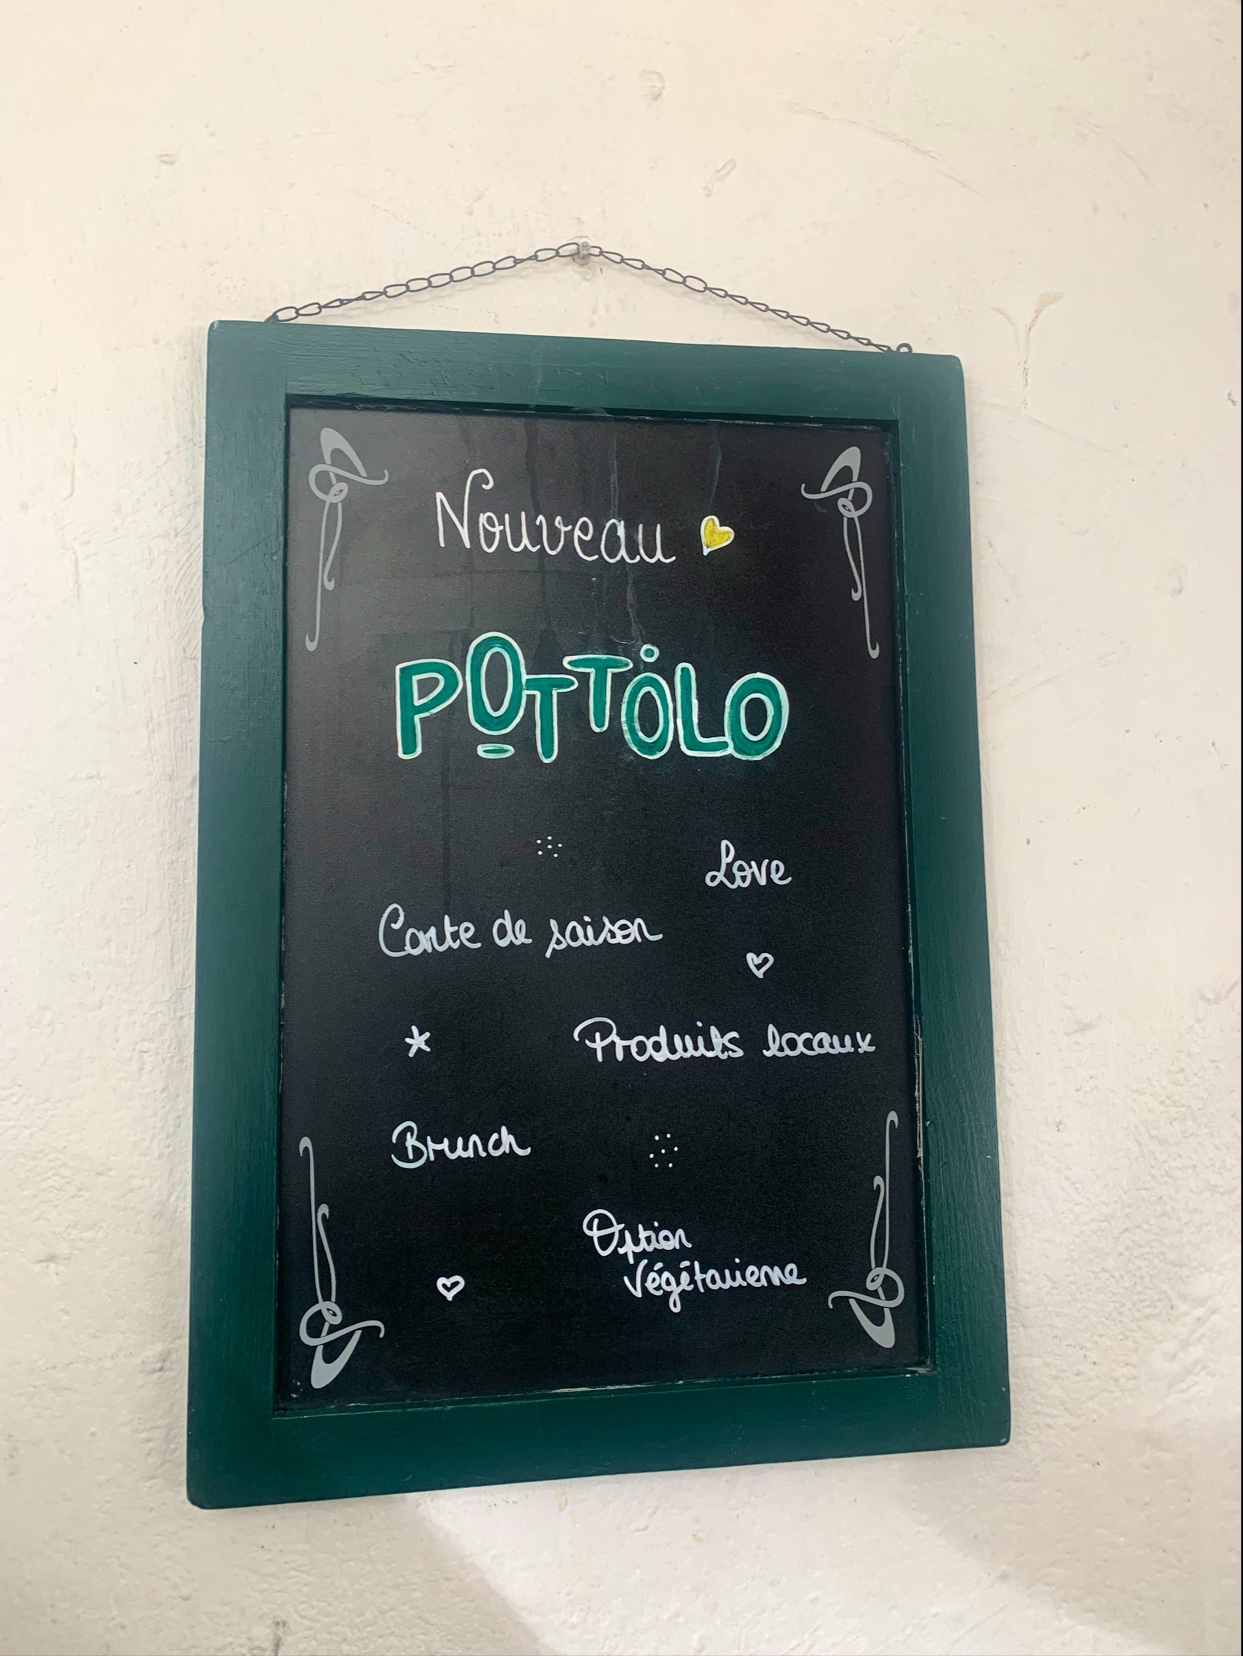 Nouveau
POTTOLO
Love
Carte de saison
Produits locaux
Brunch
Option
Végétarienne